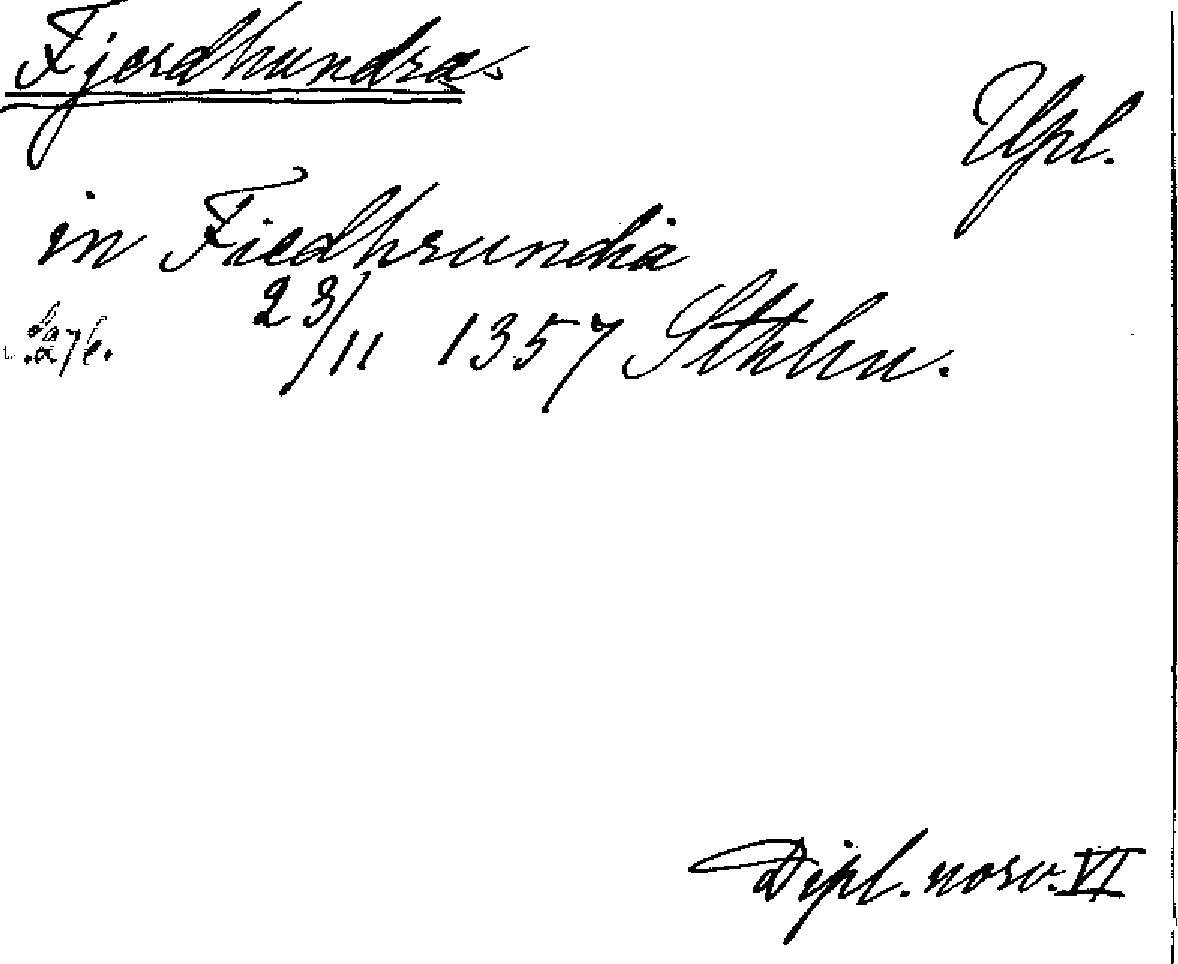 Fjerdhundra
Upl.
in Fiedhrundia
s. 276. 23/11 1357 Sthlm.
Dipl. norv. VI